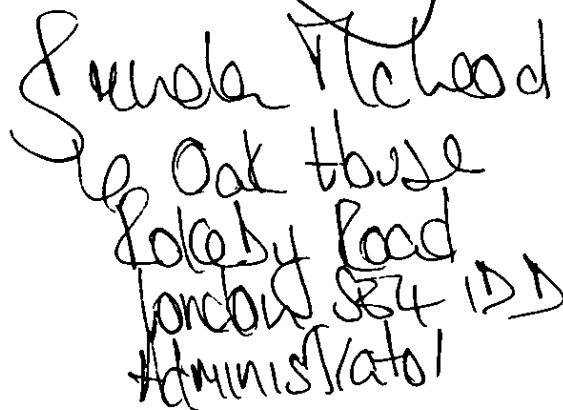 McLeod
Oak House
Rokeby Road
London SE4 1DD
Administrator